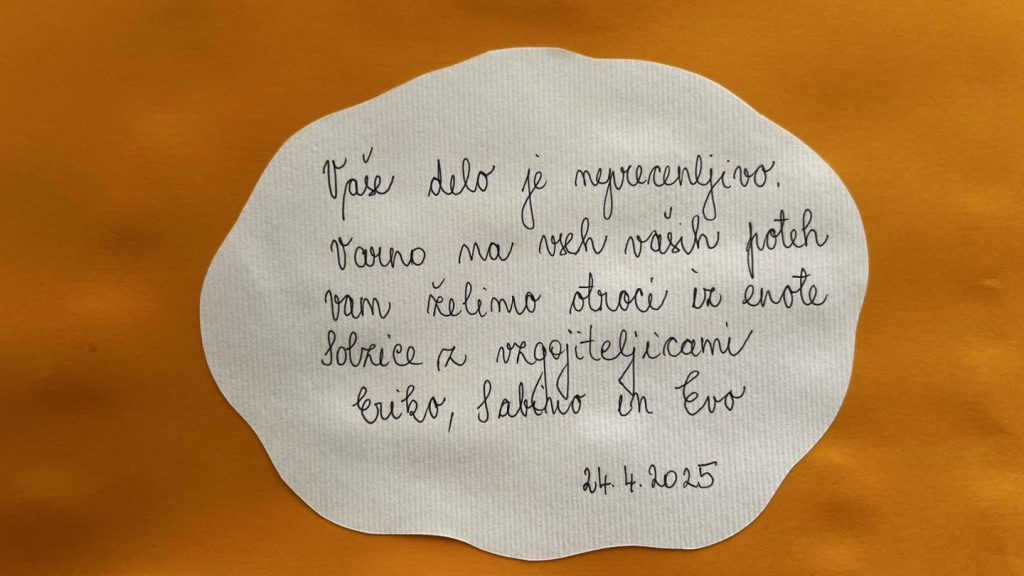 Vaše delo je neprecenljivo.
Varno na vseh vaših poteh
vam želimo otroci iz enote
Solzice z vzgojiteljicami
Eriko, Sabino in Evo
24.4.2025